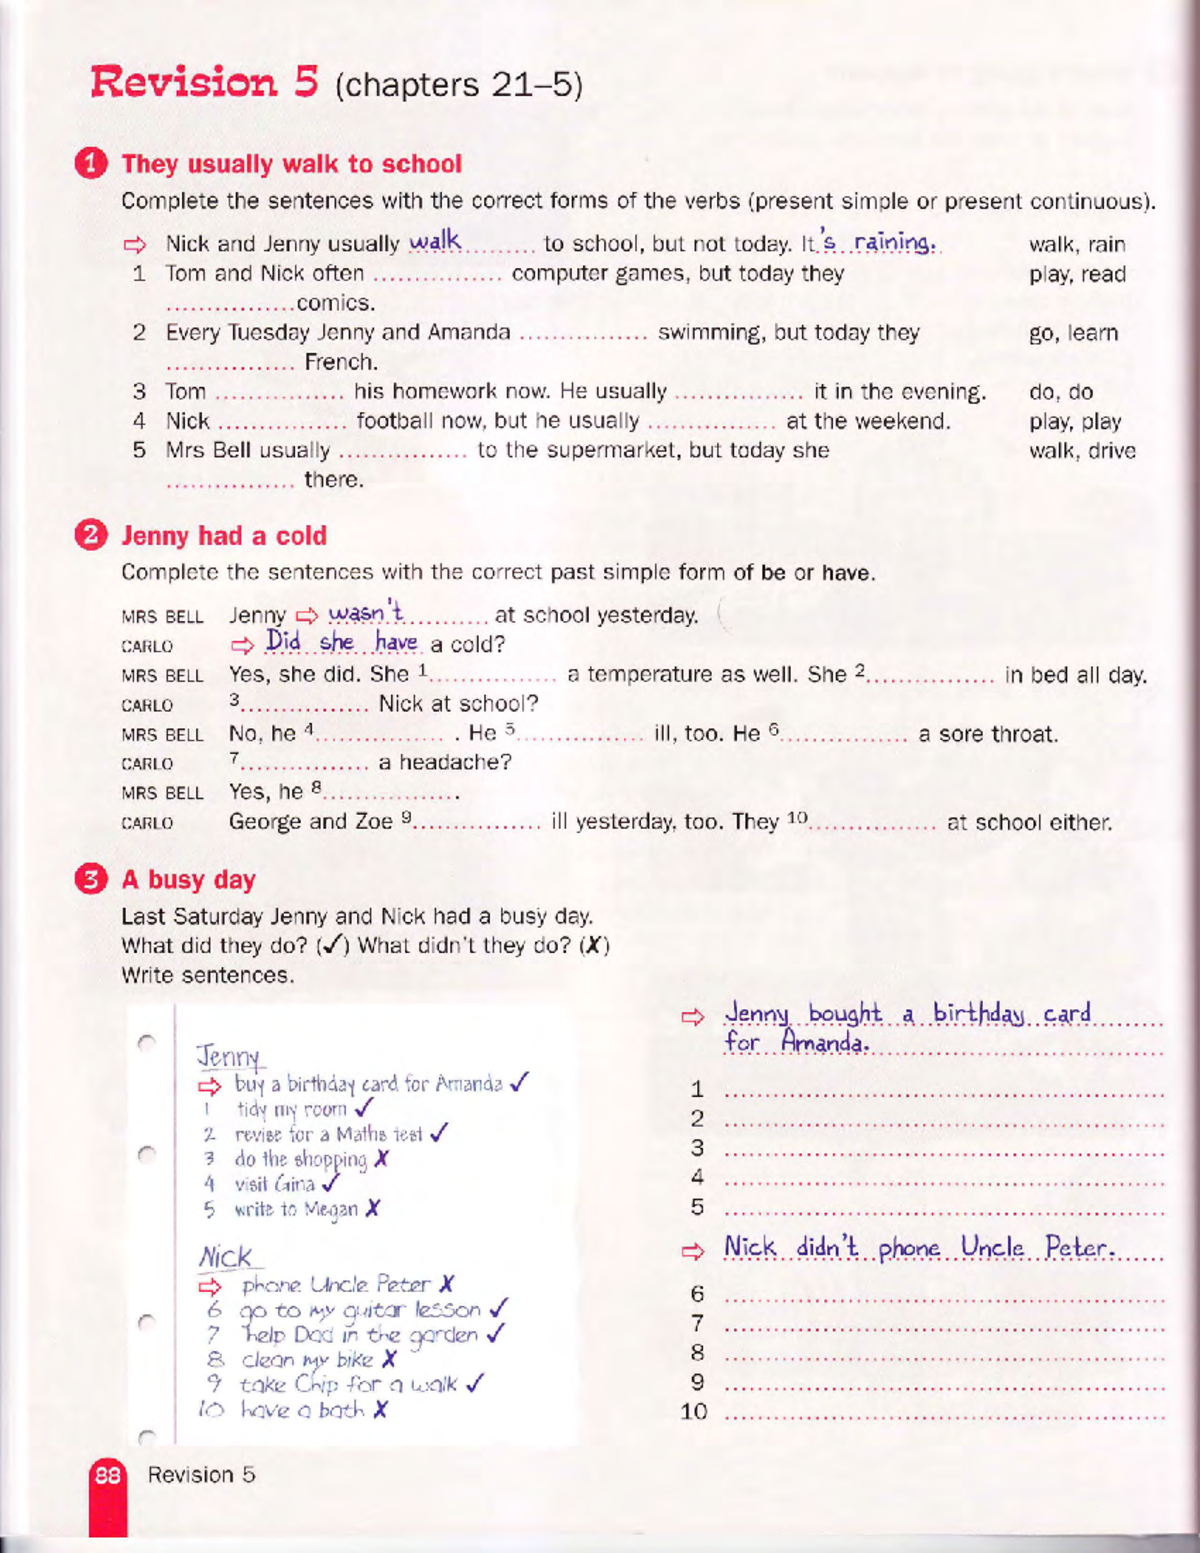 Revision 5 (chapters 21–5)
1 They usually walk to school
Complete the sentences with the correct forms of the verbs (present simple or present continuous).
⇨ Nick and Jenny usually walk ......... to school, but not today. It 's raining. walk, rain
1 Tom and Nick often ................ computer games, but today they play, read
................ comics.
2 Every Tuesday Jenny and Amanda ................ swimming, but today they go, learn
................ French.
3 Tom ................ his homework now. He usually ................ it in the evening. do, do
4 Nick ................ football now, but he usually ................ at the weekend. play, play
5 Mrs Bell usually ................ to the supermarket, but today she walk, drive
................ there.
2 Jenny had a cold
Complete the sentences with the correct past simple form of be or have.
MRS BELL Jenny ⇨ wasn't .......... at school yesterday.
CARLO ⇨ Did she have a cold?
MRS BELL Yes, she did. She 1................ a temperature as well. She 2................ in bed all day.
CARLO 3................ Nick at school?
MRS BELL No, he 4................ . He 5................ ill, too. He 6................ a sore throat.
CARLO 7................ a headache?
MRS BELL Yes, he 8................ .
CARLO George and Zoe 9................ ill yesterday, too. They 10................ at school either.
3 A busy day
Last Saturday Jenny and Nick had a busy day.
What did they do? (✓) What didn't they do? (✗)
Write sentences.
Jenny
⇨ buy a birthday card for Amanda ✓
1 tidy my room ✓
2 revise for a Maths test ✓
3 do the shopping ✗
4 visit Gina ✓
5 write to Megan ✗
Nick
⇨ phone Uncle Peter ✗
6 go to my guitar lesson ✓
7 help Dad in the garden ✓
8 clean my bike ✗
9 take Chip for a walk ✓
10 have a bath ✗
⇨ Jenny bought a birthday card
for Amanda.
1
2
3
4
5
⇨ Nick didn't phone Uncle Peter.
6
7
8
9
10
88 Revision 5